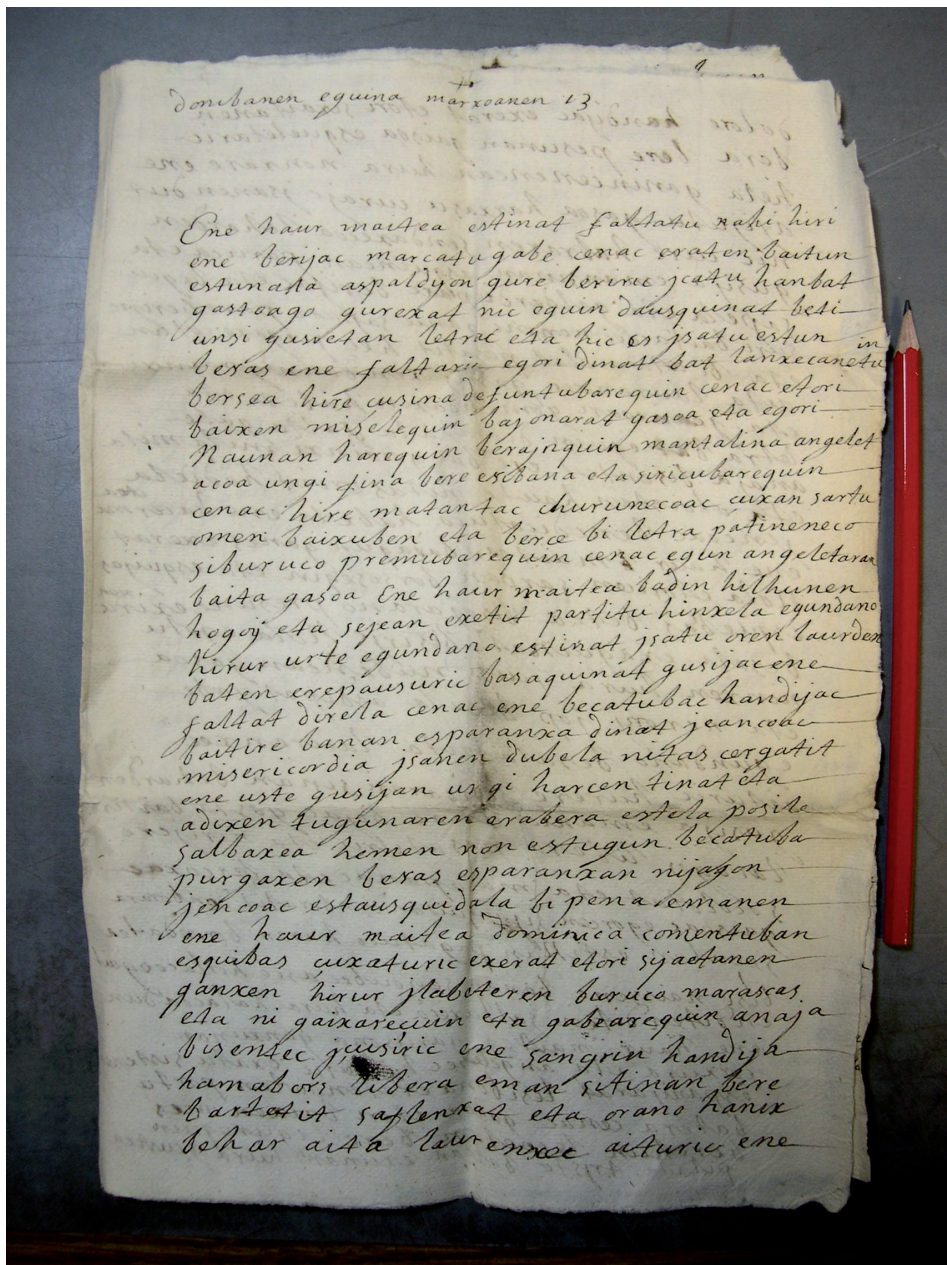 donibanen eguina marxoanen 13
Ene haur maitea estinat faltatu nahi hiri
ene berijac marcatu gabe cenac eraten baitun
estunala aspaldijon gure beriric jcatu hanbat
gastoago gurexat nic eguin dausquinat beti
unsi gusietan letrac eta hic es jsatu estun
beras ene faltaric egori dinat bat lanxecanetu
bersea hire cusina defuntubarequin cenac etori
baixen miselequin bajonarat gasoa eta egori
Naunan harequin berajnquin mantalina angelet
acoa ungi fina bere esibana eta sisicubarequin
cenac hire matantac churunecoac cuxan sartu
omen baixuben eta berce bi letra patineneco
siburuco premubarequin cenac egun angeletaran
baita gasoa Ene haur maitea badin hilhunen
hogoij eta sejean exetit partitu hinxela egundano
hirur urte egundano estinat jsatu oren laurden
baten erepausuric basaquinat gusijac ene
faltat direla cenac ene becatubac handijac
baitire banan esparanxa dinat jeancoac
misericordia jsanen dubela nitas cergatit
ene uste gusijan ungi harcen tinat eta
adixen tugunaren erabera estela posile
salbaxea hemen non estugun becatuba
purgaxen beras esparanxan nijagon
jencoac estausquidala bi pena emanen
ene haur maitea dominica comentuban
esquibas cuxaturic exerat etori sijaetanen
ganxen hirur jlabeteren buruco marascas
eta ni gaixarequin eta gabearequin anaja
bisentec jcusiric ene sangrin handija
hamabors libera eman sitinan bere
bartetit saflenxat eta orano hanix
behar aita laurenxec aituric ene